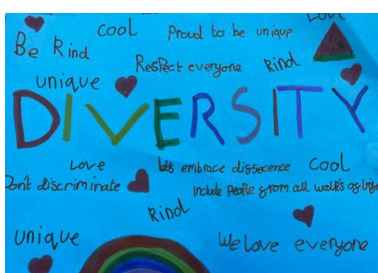 Love
COOL
Proud to be unique
Be Kind
Respect everyone
Kind
unique
DIVERSITY
Love
lets embrace dissecence
COOL
Don't discriminate
include people from all walks of life
Kind
unique
We love everyone